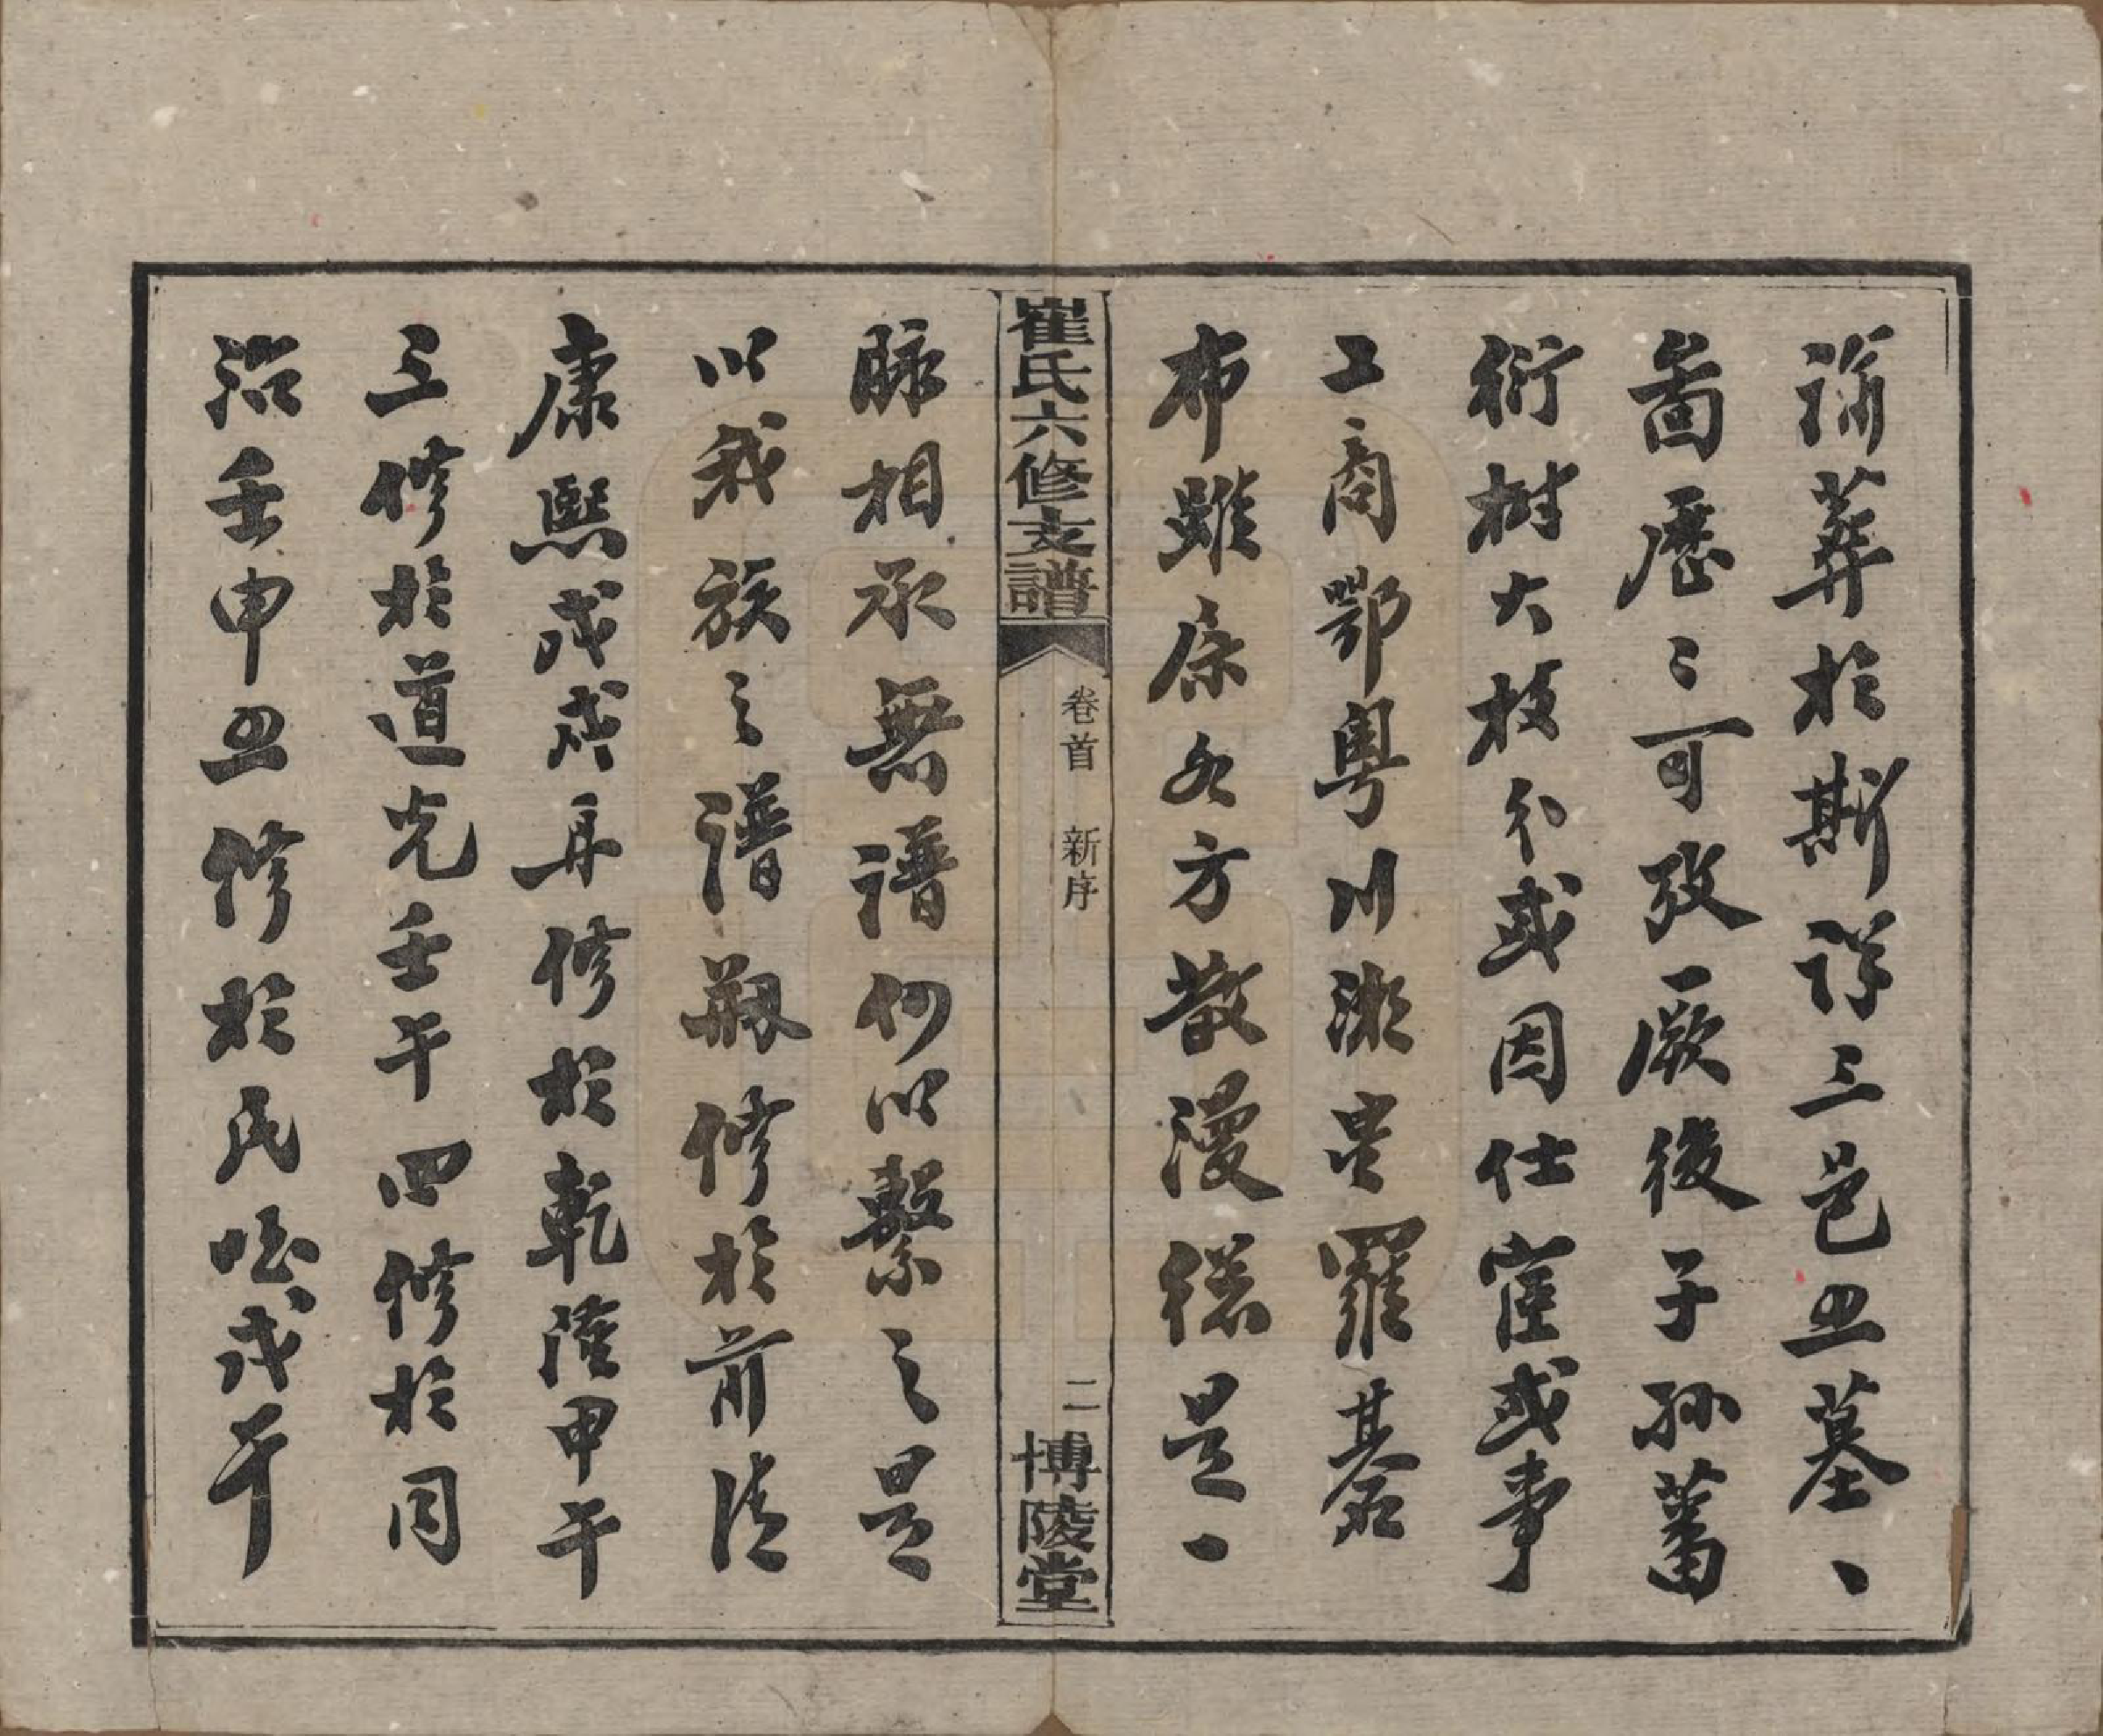 謫葬於斯詳三邑五墓丶
圖歷〻可攷厥後子孫蕃
衍樹大枝分或因仕宦或事
工商鄂粵川湘星羅碁
布雖原各方散漫穩是一
脉相承無譜何以繫之是
以我族之譜剏修於前清
康熙戊戌再修於乾隆甲午
三修於道光壬午四修於同
治壬申五修於民國戊午
崔氏六修支譜
卷首 新序
二
博陵堂